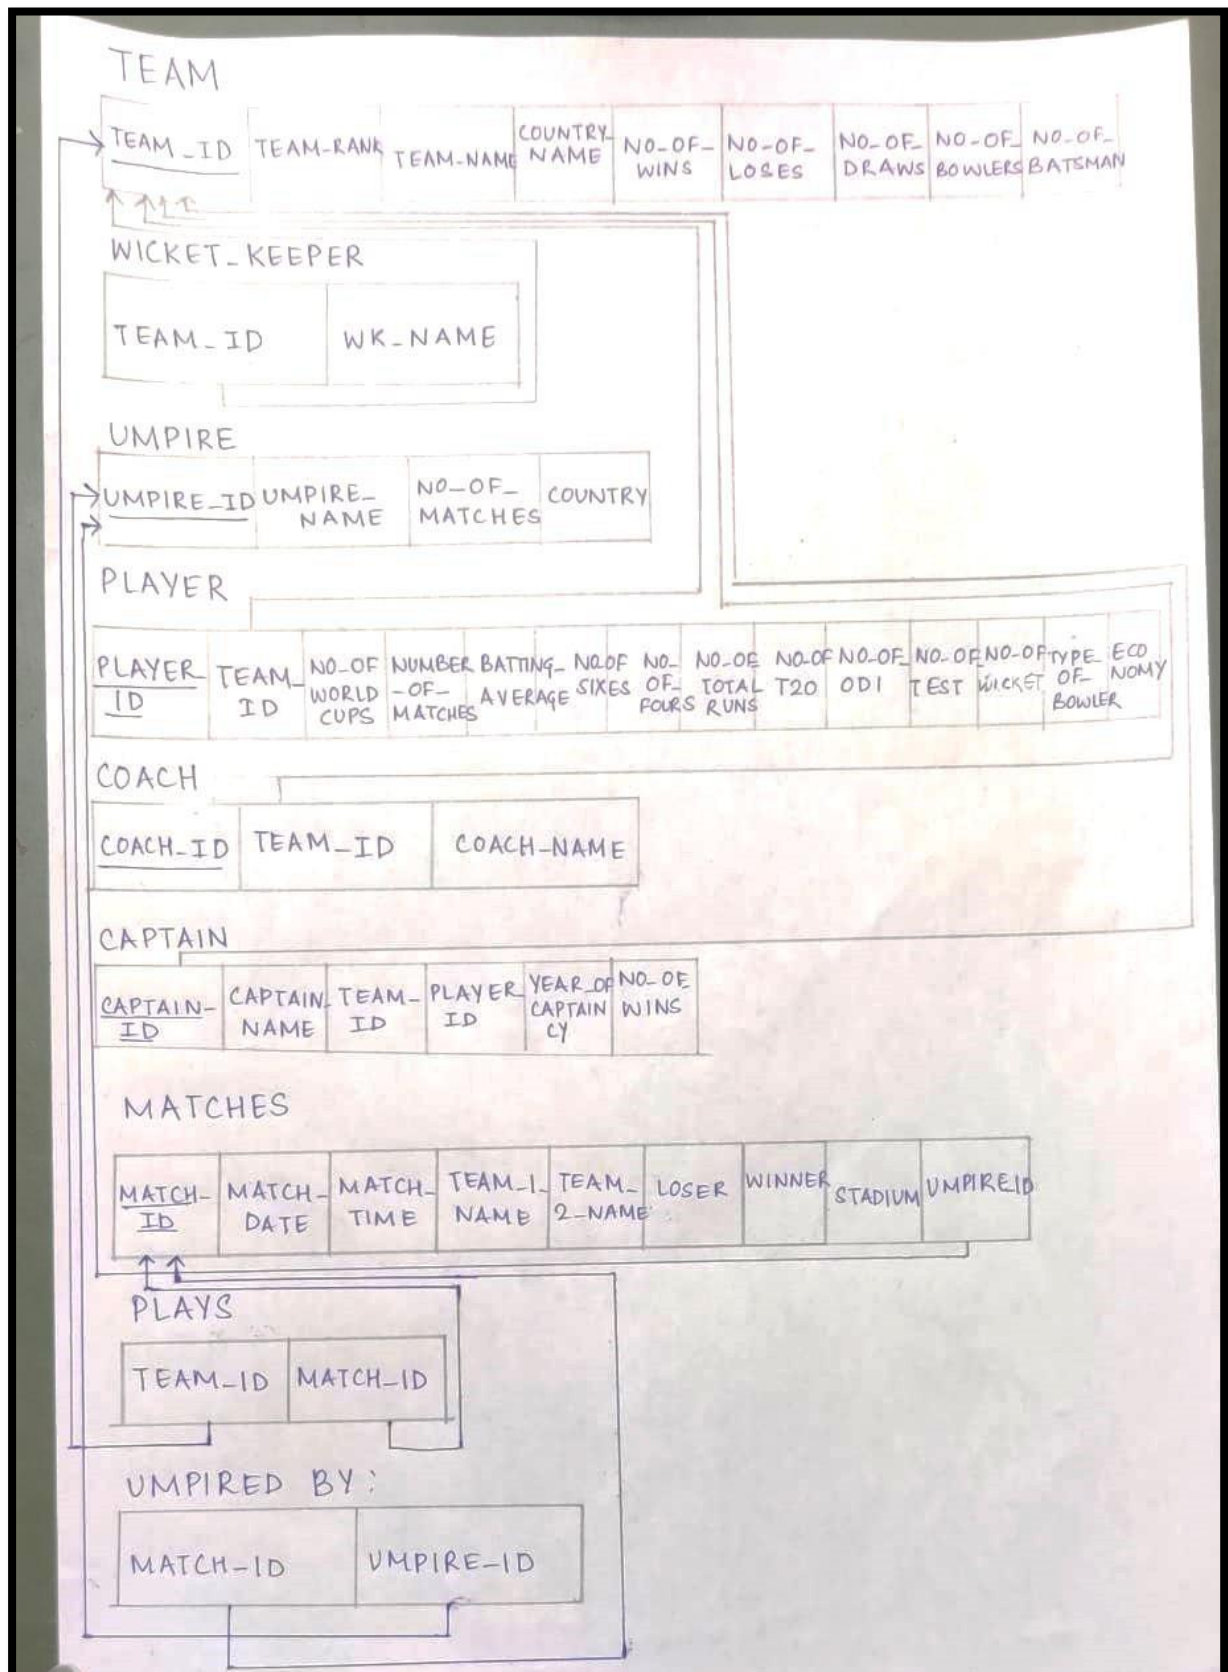 TEAM
TEAM_ID TEAM-RANK TEAM-NAME COUNTRY_ NAME NO_OF_ WINS NO_OF_ LOSES NO_OF_ DRAWS NO_OF_ BOWLERS NO_OF_ BATSMAN
WICKET_KEEPER
TEAM_ID WK_NAME
UMPIRE
UMPIRE_ID UMPIRE_ NAME NO_OF_ MATCHES COUNTRY
PLAYER
PLAYER_ ID TEAM_ ID NO_OF WORLD CUPS NUMBER -OF- MATCHES BATTING_ AVERAGE NO.OF SIXES NO_ OF_ FOURS NO_OF TOTAL RUNS NO_OF T20 NO_OF_ ODI NO_OF TEST NO_OF WICKET TYPE_ OF_ BOWLER ECO NOMY
COACH
COACH_ID TEAM_ID COACH_NAME
CAPTAIN
CAPTAIN- ID CAPTAIN_ NAME TEAM- ID PLAYER_ ID YEAR_OF CAPTAIN CY NO_OF WINS
MATCHES
MATCH- ID MATCH- DATE MATCH- TIME TEAM_1_ NAME TEAM_ 2_NAME LOSER WINNER STADIUM UMPIREID
PLAYS
TEAM_ID MATCH_ID
UMPIRED BY:
MATCH_ID UMPIRE_ID